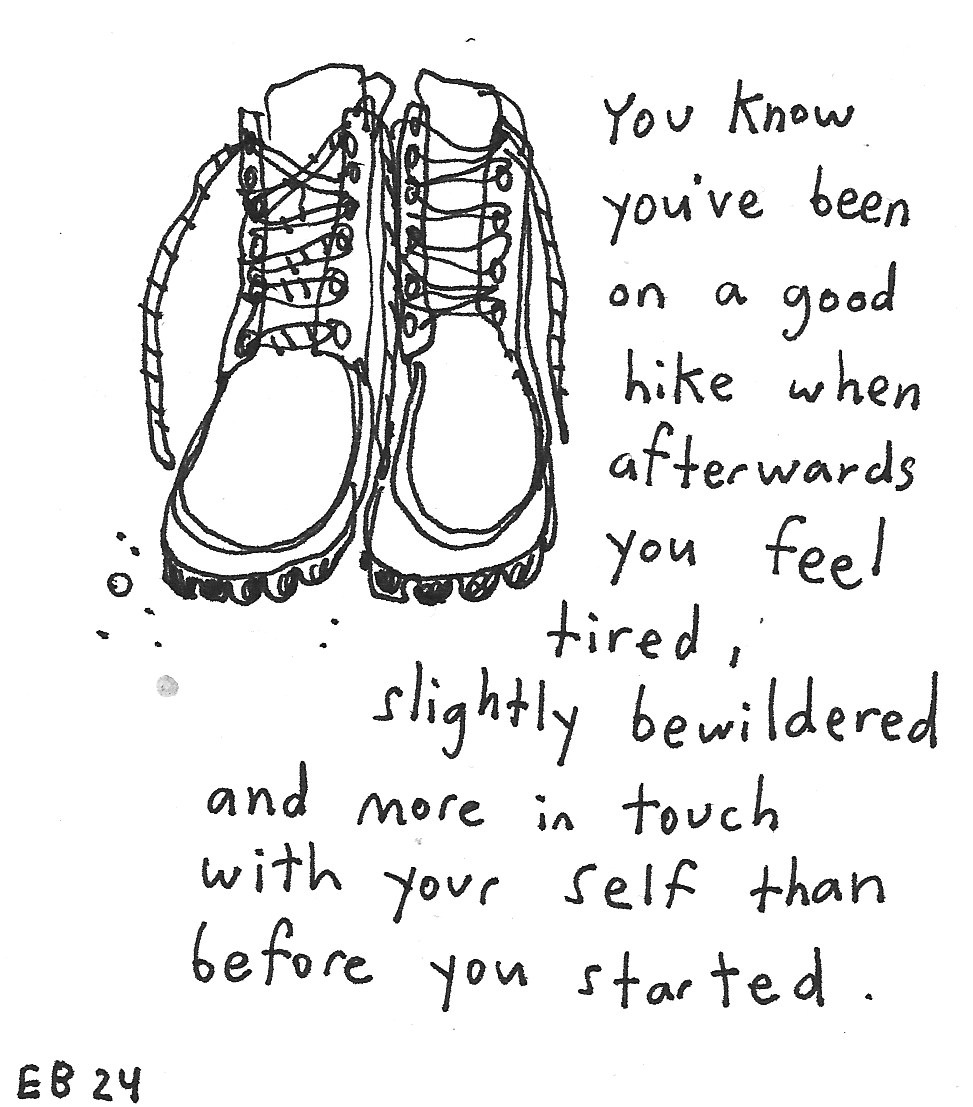 You know
you've been
on a good
hike when
afterwards
you feel
tired,
slightly bewildered
and more in touch
with your self than
before you started.
EB 24